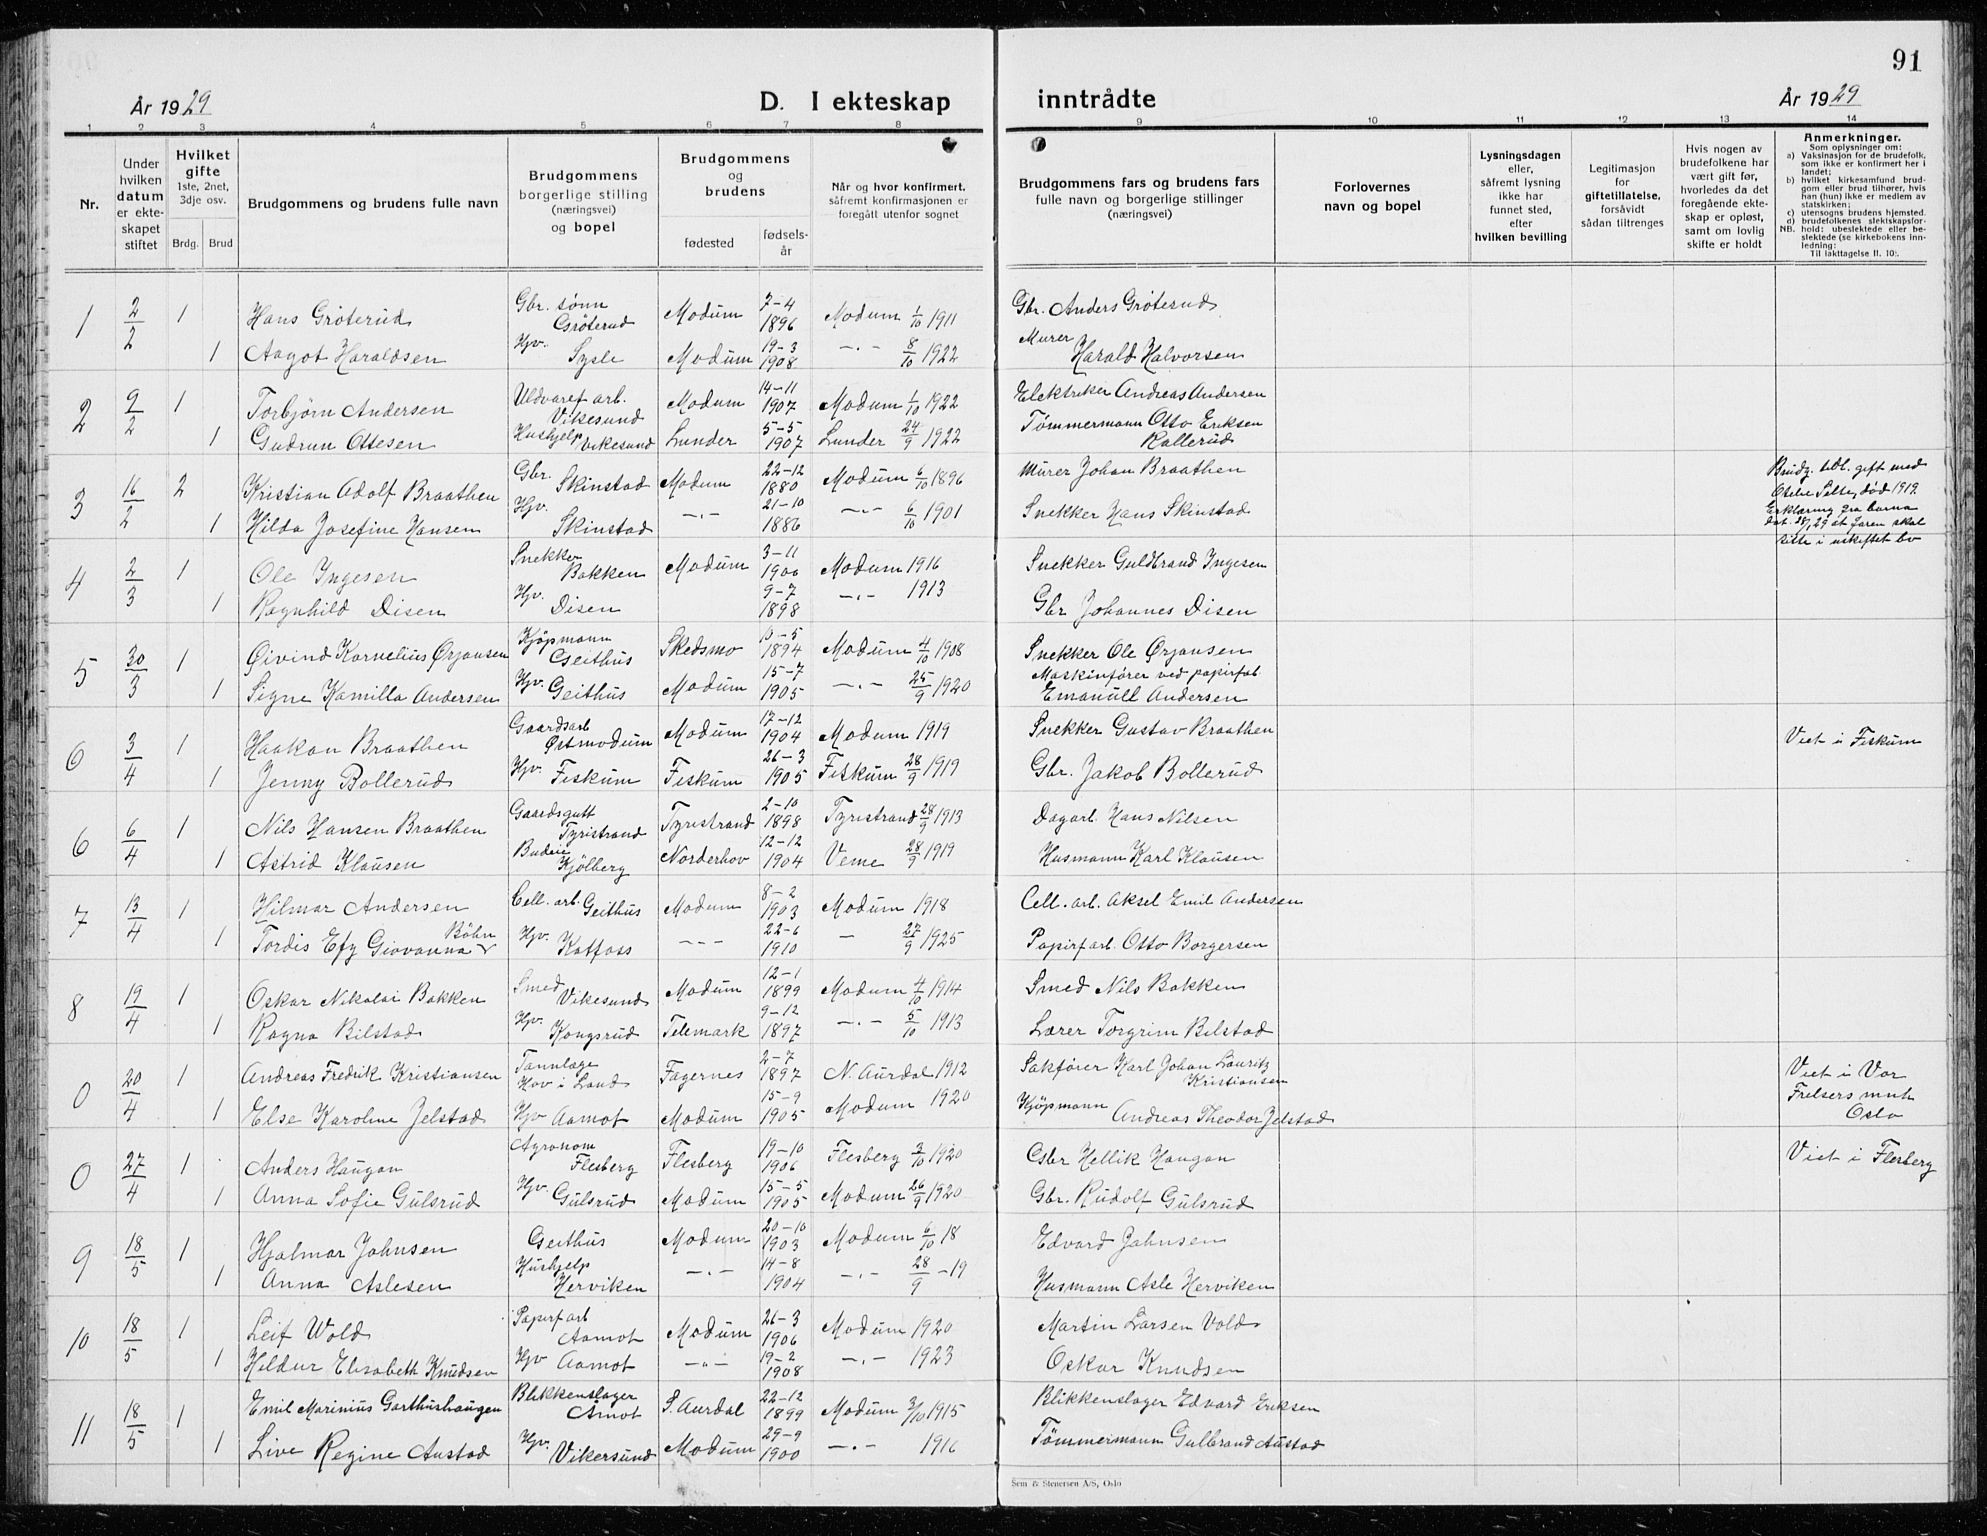 91
År 1929
D. I ekteskap
inntrådte
År 1929
1 2 3 4 5 6 7 8 9 10 11 12 13 14
Nr.
Under hvilken datum er ekte- skapet stiftet
Hvilket gifte 1ste, 2net, 3dje osv.
Brdg. Brud
Brudgommens og brudens fulle navn
Brudgommens borgerlige stilling (næringsvei) og bopel
Brudgommens og brudens
fødested
fødsels- år
Når og hvor konfirmert, såfremt konfirmasjonen er foregått utenfor sognet
Brudgommens fars og brudens fars fulle navn og borgerlige stillinger (næringsvei)
Forlovernes navn og bopel
Lysningsdagen eller, såfremt lysning ikke har funnet sted, efter hvilken bevilling
Legitimasjon for giftetillatelse, forsåvidt sådan tiltrenges
Hvis nogen av brudefolkene har vært gift før, hvorledes da det foregående ekte- skap er opløst, samt om lovlig skifte er holdt
Anmerkninger.
Som oplysninger om:
a) Vaksinasjon for de brudefolk, som ikke er konfirmert her i landet;
b) hvilket kirkesamfund brud- gom eller brud tilhører, hvis han (hun) ikke er medlem av statskirken;
c) utensogns brudens hjemsted.
d) brudefolkenes slektskapsfor-
NB. hold: ubeslektede eller be- slektede (se kirkebokens inn- ledning:
Til iakttagelse II. 10).
1 2/2 1 Hans Gröterud Gbr. sønn Gröterud Modum 7-4 1896 Modum 1/10 1911 Gbr. Anders Gröterud
1 Aagot Haraldsen Hjv. Sysle Modum 19-3 1908 -.- 8/10 1922 Murer Harald Halvorsen
2 9/2 1 Torbjörn Andersen Uldvaref arb. Vikesund Modum 14-11 1907 Modum 1/10 1922 Elektriker Andreas Andersen
1 Gudrun Ottesen Hushjelp Vikesund Lunder 5-5 1907 Lunder 24/9 1922 Tömmermann Otto Eriksen Rallerud
3 16/2 2 Kristian Adolf Braathen Gbr. Skinstad Modum 22-12 1880 Modum 6/10 1896 Murer Johan Braathen
1 Hilda Josefine Hansen Hjv. Skinstad -.- 21-10 1886 -.- 6/10 1901 Snekker Hans Skinstad
Brudg. tidl. gift med
død 1919.
Erklæring fra barna
at faren skal
sitte i uskiftet bo
4 2/3 1 Ole Ingesen Snekker Bakken Modum 3-11 1900 Modum 1916 Snekker Guldbrand Ingesen
1 Ragnhild Disen Hjv. Disen 9-7 1898 -.- 1913 Gbr Johannes Disen
5 30/3 1 Øivind Kornelius Ørjansen Kjöpmann Geithus Skedsmo 1894 Modum 4/10 1908 Snekker Ole Ørjansen
1 Signe Kamilla Andersen Hjv. Geithus Modum 15-7 1905 -.- 25/9 1920 Maskinfører ved papirfab. Emanuel Andersen
6 3/4 1 Haakon Braathen Gaardsarb Østmodum Modum 17-12 1904 Modum 1919 Snekker Gustav Braathen Viet i Fiskum
1 Jenny Bollerud Hjv. Fiskum Fiskum 26-3 1905 Fiskum 28/9 1919 Gbr. Jakob Bollerud
6 6/4 1 Nils Hansen Braathen Gaardsgutt Tyristrand Tyristrand 2-10 1898 Tyristrand 28/9 1913 Dagarb. Hans Nilsen
1 Astrid Klausen Budeie Kjölberg Norderhov 12-12 1904 Veme 28/9 1919 Husmann Karl Klausen
7 13/4 1 Hilmar Andersen Cell. arb. Geithus Modum 8-2 1903 Modum 1918 Cell. arb. Aksel Emil Andersen
1 Tordis Efy Giovanna Böhn Hjv. Katfoss --- 22-6 1910 - 27/9 1925 Papirfarb. Otto Borgersen
8 19/4 1 Oskar Nikolai Bakken Smed Vikesund Modum 12-1 1899 Modum 4/10 1914 Smed Nils Bakken
1 Ragna Bilstad Hjv. Kongsrud Telemark 9-12 1897 -.- 5/10 1913 Lærer Torgrim Bilstad
0 20/4 1 Andreas Fredrik Kristiansen Tannlæge Hov i Land Fagernes 2-7 1897 N. Aurdal 1912 Sakfører Karl Johan Lauritz Kristiansen
1 Else Karoline Jelstad Hjv Aamot Modum 15-9 1905 Modum 1920 Kjöpmann Andreas Theodor Jelstad
Viet i Vor
Frelsers
Oslo
0 27/4 1 Anders Haugan Agronom Flesberg Flesberg 19-10 1906 Flesberg 3/10 1920 Gbr Hellik Haugan Viet i Flesberg
1 Anna Sofie Gulsrud Hjv. Gulsrud Modum 15-5 1905 Modum 26/9 1920 Gbr. Rudolf Gulsrud
9 18/5 1 Hjalmar Johnsen Geithus Modum 20-10 1903 Modum 6/10 18 Edvard Johnsen
1 Anna Aslesen Hushjelp Herviken -.- 14-8 1904 -.- 28/9 -19 Husmann Asle Herviken
10 18/5 1 Leif Wold Papirfarb Aamot Modum 26-3 1906 Modum 1920 Martin Larsen Vold
1 Hildur Elisabeth Knudsen Hjv Aamot -.- 19-2 1908 -.- 1923 Oskar Knudsen
11 18/5 1 Emil Marinius Garthushaugen Blikkenslager Åmot S. Aurdal 22-12 1899 Modum 3/10 1915 Blikkenslager Edvard Eriksen
1 Live Regine Austad Hjv. Vikersund Modum 29-9 1900 -.- 1916 Tömmermann Gulbrand Austad
Sem & Stenersen A/S, Oslo